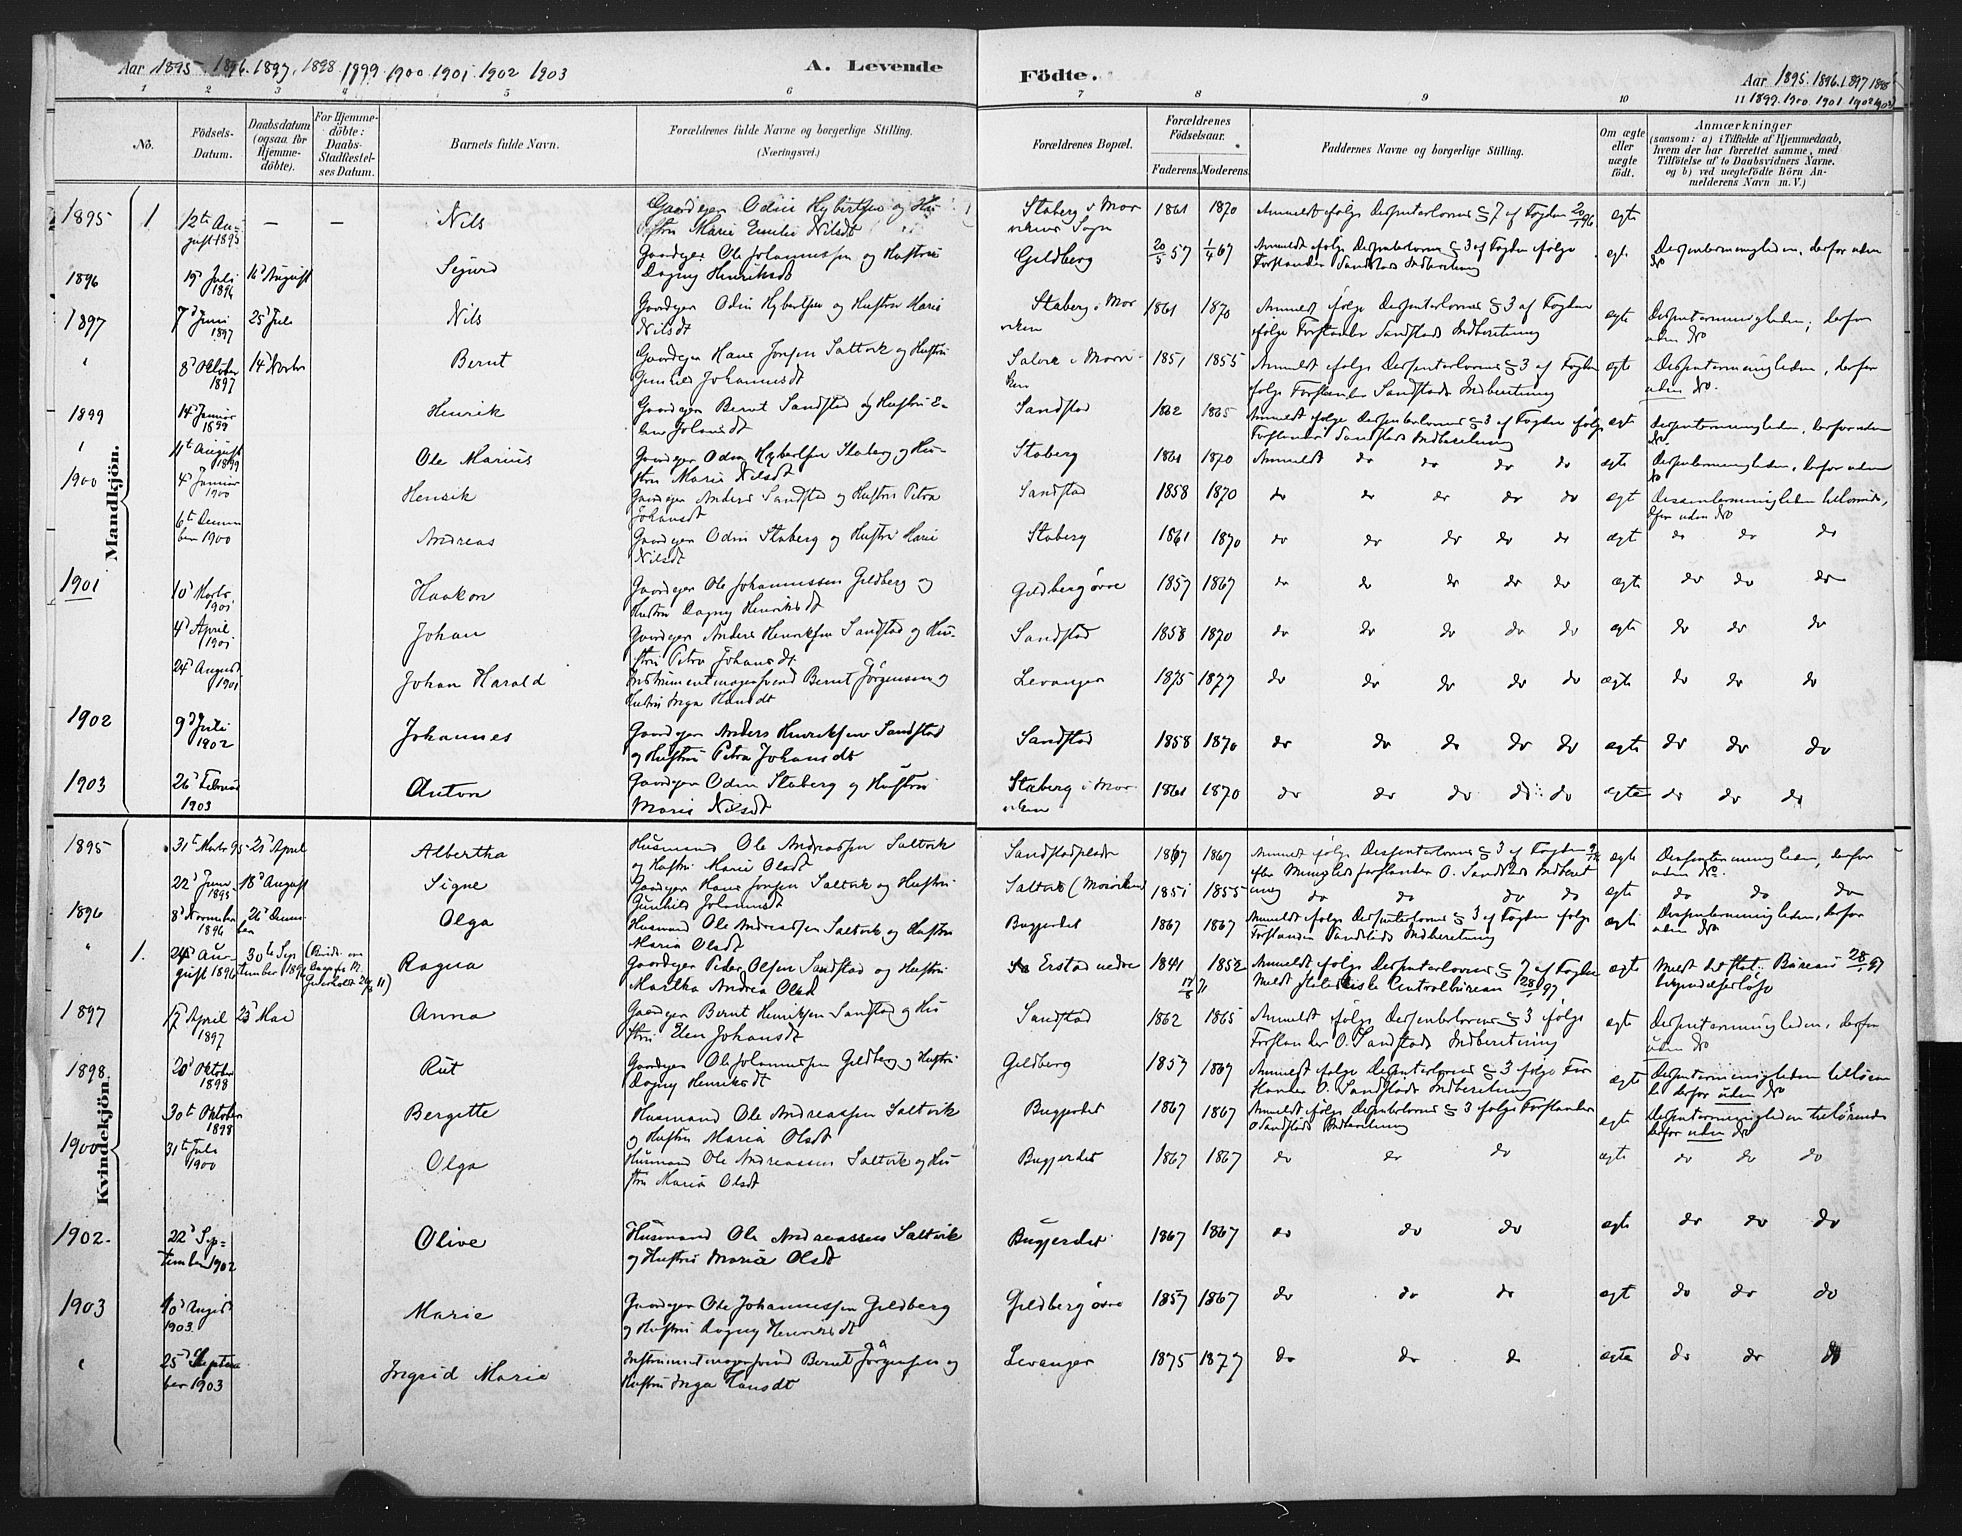 Aar 1895. 1896. 1897. 1898 1899 1900. 1901. 1902 1903
A. Levende
Födte.
Aar 1895. 1896. 1897 1898
1899. 1900. 1901. 1902 1903
1 2 3 4 5 6 7 8 9 10 11
No.
Fødsels-Datum.
Daabsdatum (ogsaa for Hjemmedöbte).
For Hjemmedöbte: Daabs-Stadfæstelses Datum.
Barnets fulde Navn.
Forældrenes fulde Navne og borgerlige Stilling.
(Næringsvei.)
Forældrenes Bopæl.
Forældrenes Födselsaar.
Faderens. Moderens.
Faddernes Navne og borgerlige Stilling.
Om ægte eller uægte födt.
Anmærkninger
(saasom: a) i Tilfælde af Hjemmedaab,
hvem der har forrettet samme, med
Tilföielse af to Daabsvidners Navne.
og b) ved uægtefödte Börn Anmelderens Navn m. V.)
Mandkjön.
1895 1 12te August 1895 — — Nils Gaardeger Odin Hybertsen og Hustru Marie Nilsdt Staberg i Morvikens Sogn 1861 1870 Anmeldt ifølge Dissenterlovens § 7 af Fogden ægte
1896 19d Juli 1896 16d August Sigurd Gaardeger Ole Johannessen og Hustru Dagny Henriksdt Geldberg 20/5 57 1/4 67 Anmeldt ifølge Dissenterlovens § 3 af Fogden ifølge Forstander Sandstads Indberetning ægte Dissentermenigheden, derfor uden No
1897 7d Juni 1897 25d Juli Nils Gaardeger Odin Hybertsen og Hustru Marie Nilsdt Staberg i Morviken 1861 1870 Anmeldt ifølge Dissenterlovens § 3 af Fogden ifølge Forstander Sandstads Indberetning ægte Dissentermenigheden, derfor uden No
" 8d Oktober 1897 14d Novbr Bernt Gaardeger Hans Jonsen Saltvik og Hustru Gunhild Johannesdt 1851 1855 Anmeldt ifølge Dissenterlovens § 3 af Fogden ifølge Forstander Sandstads Indberetning ægte Dissentermenigheden, derfor uden No.
1899 14d Januar 1899 Henrik Gaardeger Bernt Sandstad og Hustru Elen Johansdt Sandstad 1862 1865 Anmeldt ifølge Dissenterlovens § 3 af Fogden ifølge Forstander Sandstads Indberetning ægte Dissentermenigheden, derfor uden No
" 11te August 1899 Ole Marius Gaardeger Odin Hybertsen Staberg og Hustru Marie Nilsdt Staberg 1861 1870 Anmeldt do do do do ægte Dissentermenigheden, derfor uden No
1900 4d Januar 1900 Henrik Gaardeger Anders Sandstad og Hustru Petra Johansdt Sandstad 1858 1870 do do do do do ægte Dissentermenigheden tilhørende, derfor uden No
6te Decem ber 1900 Andreas Gaardeger Odin Staberg og Hustru Marie Nilsdt Staberg 1861 1870 do do do do do ægte do do do
1901 1901 Haakon Gaardeger Ole Johannessen Geldberg og Hustru Dagny Henriksdt Geldberg øvre 1857 1867 do do do do do ægte do do do
4d April 1901 Johan Gaardeger Anders Henriksen Sandstad og Hustru Petra Johansdt Sandstad 1858 1870 do do do do do ægte do do do
24d August 1901 Johan Harald Instrumentmagersvend Bernt Jørgensen og Hustru Inga Hansdt Levanger 1875 1877 do do do do do ægte do do do
1902 9d Juli 1902 Johannes Gaardeger Anders Henriksen Sandstad og Hustru Petra Johansdt Sandstad 1858 1870 do do do do do ægte do do do
1903 26d Februar 1903 Anton Gaardeger Odin Staberg og Hustru Marie Nilsdt Staberg i Morviken 1861 1870 do do do do do ægte do do do
Kvindekjön.
1895 31te Marts 95 21d April Albertha Husmand Ole Andreassen Saltvik og Hustru Marie Olsdt Sandstadplads 1867 1867 Anmeldt ifølge Dissenterlovens § 3 af Fogden efter Menigheds forstander O. Sandstads Indberetning ægte Dissentermenigheden, derfor uden No.
22d Juni 1895 18d August Signe Gaardeger Hans Jonsen Saltvik og Hustru Gunhild Johannesdt Saltvik (Morviken) 1851 1855 do do do do ægte do do do
1896 8d November 1896 26d Decem ber Olga Husmand Ole Andreassen Saltvik og Hustru Maria Olsdt Bugjerdet 1867 1867 Anmeldt ifølge Dissenterlovens § 3 af Fogden ifølge Forstander Sandstads Indberetning ægte Dissentermenigheden, derfor uden No
" 1. 24de August 1896 30te September 1896 Ragna Gaardeger Peder Olsen Sandstad og Hustru Martha Andrea Olsd Erstad nedre 1841 1852 Anmeldt ifølge Dissenterlovens § 7 af Fogden Meldt statistiske Centralbureau 28/1 97 ægte Meldt det stat. Bureau 28/1 97
1897 17d April 1897 23d Mai Anna Gaardeger Bernt Henriksen Sandstad og Hustru Elen Johansdt Sandstad 1862 1865 Anmeldt ifølge Dissenterlovens § 3 ifølge Forstander O. Sandstads Indberetning ægte Dissentermenigheden, derfor uden No
1898. 20d Oktober 1898 Rut Gaardeger Ole Johannessen Geldberg og Hustru Dagny Henriksdt Geldberg 1857 1867 Anmeldt ifølge Dissenterlovens § 3 ifølge Forstander O. Sandstads Indberetning ægte Dissentermenigheden tilhørende derfor uden No
30te Oktober 1898 Bergitte Husmand Ole Andreassen Saltvik og Hustru Maria Olsdt Bugjerdet 1867 1867 Anmeldt ifølge Dissenterlovens § 3 ifølge Forstander O Sandstads Indberetning ægte Dissentermenigheden tilhørende derfor uden No
1900 31te Juli 1900 Olga Husmand Ole Andreassen Saltvik og Hustru Maria Olsdt Bugjerdet 1867 1867 do do do ægte do do do
1902. 22d September 1902 Olive Husmand Ole Andreassen Saltvik og Hustru Maria Olsdt Bugjerdet 1867 1867 do do do ægte do do do
1903 1903. Marie Gaardeger Ole Johannessen Geldberg og Hustru Dagny Henriksdt Geldberg øvre 1857 1867 do do do ægte do do do
" 25d September 1903 Ingrid Marie Instrumentmagersvend Bernt Jørgensen og Hustru Inga Hansdt Levanger 1875 1877 do do do ægte do do do